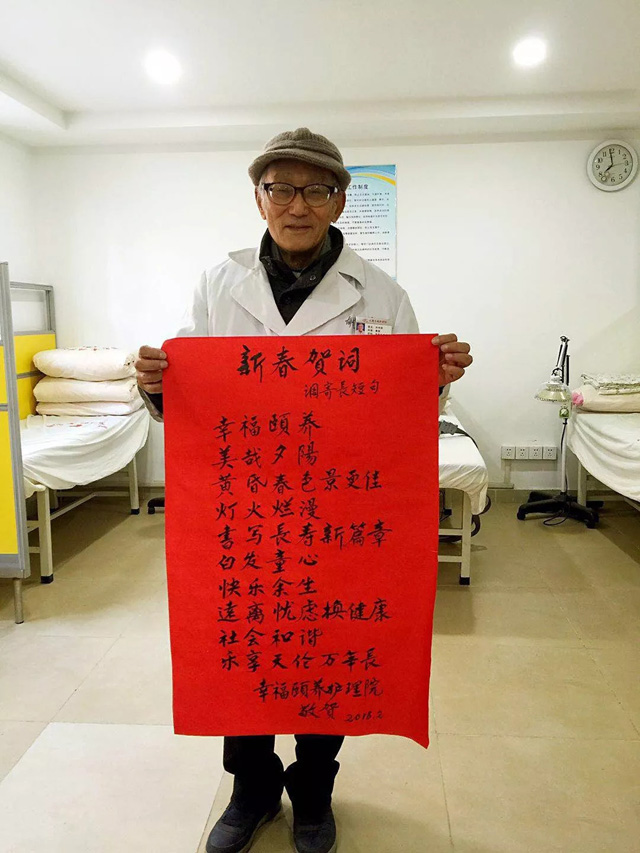 工作制度
新春贺词
调寄長短句
幸福頤养
美哉夕陽
黄昏春色景更佳
灯火烂漫
書写長寿新篇章
白发童心
快乐余生
遠离忧虑换健康
社会和谐
乐享天伦万年長
幸福頤养护理院
敬贺 2018.2